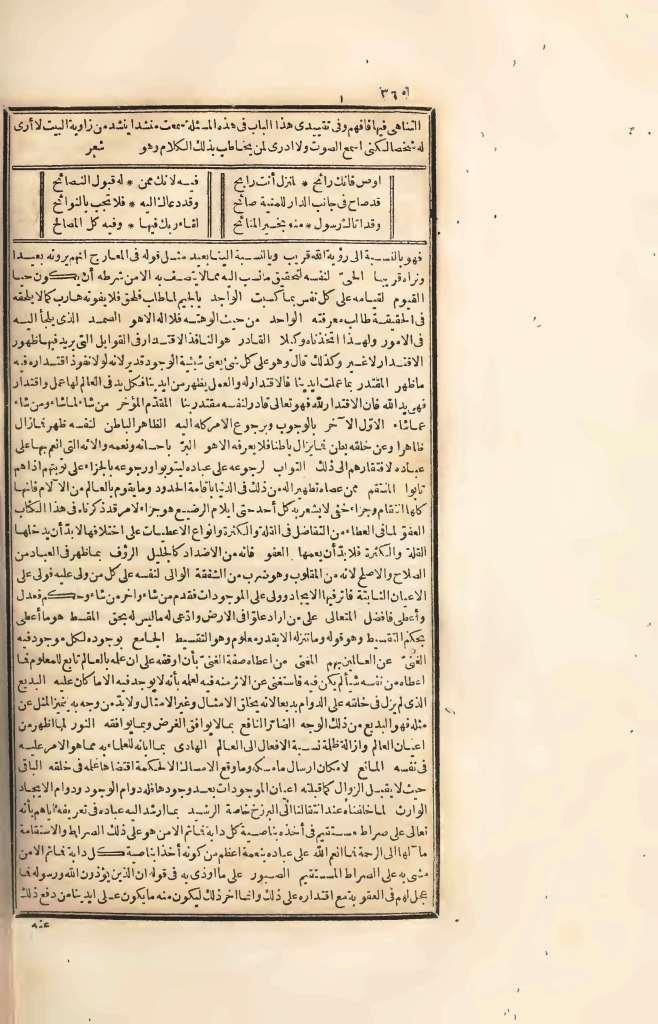 ٣٦٥
التناهى فيها فافهم وفى تقييدى هذا الباب فى هذه المسئلة سمعت منشدا ينشد من زاوية البيت لا أرى
له شخصا لكنى اسمع الصوت ولا ادرى لمن يخاطب بذلك الكلام وهو شعر
اوص فانك رايح * لمنزل أنت رايح فيه لانك ممن * له قبول النصائح
قد صاح فى جانب الدار للمنية صائح وقد دعاك اليه * فلا تجب بالنوائح
وقد اتاك رسول * منه بخير المنائح لقاء ربك فيها * وفيه كل المصالح
فهو بالنسبة الى رؤية الله قريب وبالنسبة الينا بعيد مثل قوله فى المعارج انهم يرونه بعيدا
ونراه قريبا الحىّ لنفسه لتحقيق ما نسب اليه مما لا يتصف به الا من شرطه أن يكون حيا
القيوم لقيامه على كل نفس بما كسبت الواجد بالجيم لما طلب فلحق فلا يفوته هارب كما لا يلحقه
فى الحقيقة طالب معرفته الواحد من حيث الوهته فلا اله الا هو الصمد الذى يلجأ اليه
فى الامور ولهذا اتخذناه وكيلا القادر هو النافذ الاقتدار فى القوابل التى يريد فيها ظهور
الاقتدار لا غير وكذلك قال وهو على كل شئ يعنى شيئية الوجود قدير لانه لولا نفوذ اقتداره فيه
ما ظهر المقتدر بما عملت ايدينا فالاقتدار له والعمل يظهر من ايدينا فكل يد فى العالم لها عمل واقتدار
فهى يد الله فان الاقتدار لله فهو تعالى قادر لنفسه مقتدر بنا المقدّم المؤخر من شاء لما شاء ومن شاء
عما شاء الاوّل الآخر بالوجوب وبرجوع الامر كله اليه الظاهر الباطن لنفسه ظهر فما زال
ظاهرا وعن خلقه بطن فما يزال باطنا فلا يعرف الا هو البرّ باحسانه ونعمه وآلائه التى انعم بها على
عباده لافتقارهم الى ذلك التواب لرجوعه على عباده ليتوبوا ورجوعه بالجزاء على توبتهم اذا هم
تابوا المنتقم ممن عصاه تطهيرا له من ذلك فى الدنيا باقامة الحدود وما يقوم بالعالم من الآلام فانها
كلها انتقام وجزاء خفى لا يشعر به كل أحد حتى ايلام الرضيع هو جزاء لامر قد ذكرناه فى هذا الكتاب
العفو لما فى العطاء من التفاضل فى القلة والكثرة وانواع الاعطيات على اختلافها لا بدّ أن يدخلها
القلة والكثرة فلا بدّ أن يعمها العفو فانه من الاضداد كالجليل الرؤف بما ظهر فى العباد من
الصلاح والاصلح لانه من المقلوب وهو ضرب من الشفقة الوالى لنفسه على كل من ولى عليه فولى على
الاعيان الثابتة فاثر فيها الايجاد وولى على الموجودات فقدم من شاء واخر من شاء وحكم فعدل
وأعطى فافضل المتعالى على من اراد علوّا فى الارض وادّعى له ما ليس له بحق المقسط هو ما أعطى
بحكم التقسيط وهو قوله وما ننزله الا بقدر معلوم وهو التقسيط الجامع بوجوده لكل موجود فيه
الغنىّ عن العالمين بهم المغنى من اعطاه صفة الغنى بأن اوقفه على ان علمه بالعالم تابع للمعلوم فما
اعطاه من نفسه شيأ لم يكن فيه فاستغنى عن الاثر منه فيه لعلمه بأنه لا يوجد فيه الا ما كان عليه البديع
الذى لم يزل فى خلقه على الدوام بديعا لانه يخلق الامثال وغير الامثال ولا بدّ من وجه به يتميز المثل عن
مثله فهو البديع من ذلك الوجه الضارّ النافع بما لا يوافق الغرض وبما يوافقه النور لما اظهر من
اعيان العالم وازالة ظلمة نسبة الافعال الى العالم الهادى بما ابانه للعلماء به مما هو الامر عليه
فى نفسه المانع لامكان ارسال ما مسكه وما وقع الامساك الا لحكمة اقتضاها علمه فى خلقه الباقى
حيث لا يقبل الزوال كما قبلته اعيان الموجودات بعد وجودها فله دوام الوجود ودوام الايجاد
الوارث لما خلفناه عند انتقالنا الى البرزخ خاصة الرشيد بما ارشد اليه عباده فى تعريفه اياهم بأنه
تعالى على صراط مستقيم فى أخذه بناصية كل دابة فما ثم الا من هو على ذلك الصراط والاستقامة
مآلها الى الرحمة فما انعم الله على عباده بنعمة اعظم من كونه أخذا بناصية كل دابة فما ثم الا من
مشى به على الصراط المستقيم الصبور على ما اوذى به فى قوله ان الذين يؤذون الله ورسوله فما
عجل لهم فى العقوبة مع اقتداره على ذلك وانما اخر ذلك ليكون منه ما يكون على ايدينا من دفع ذلك
عنه